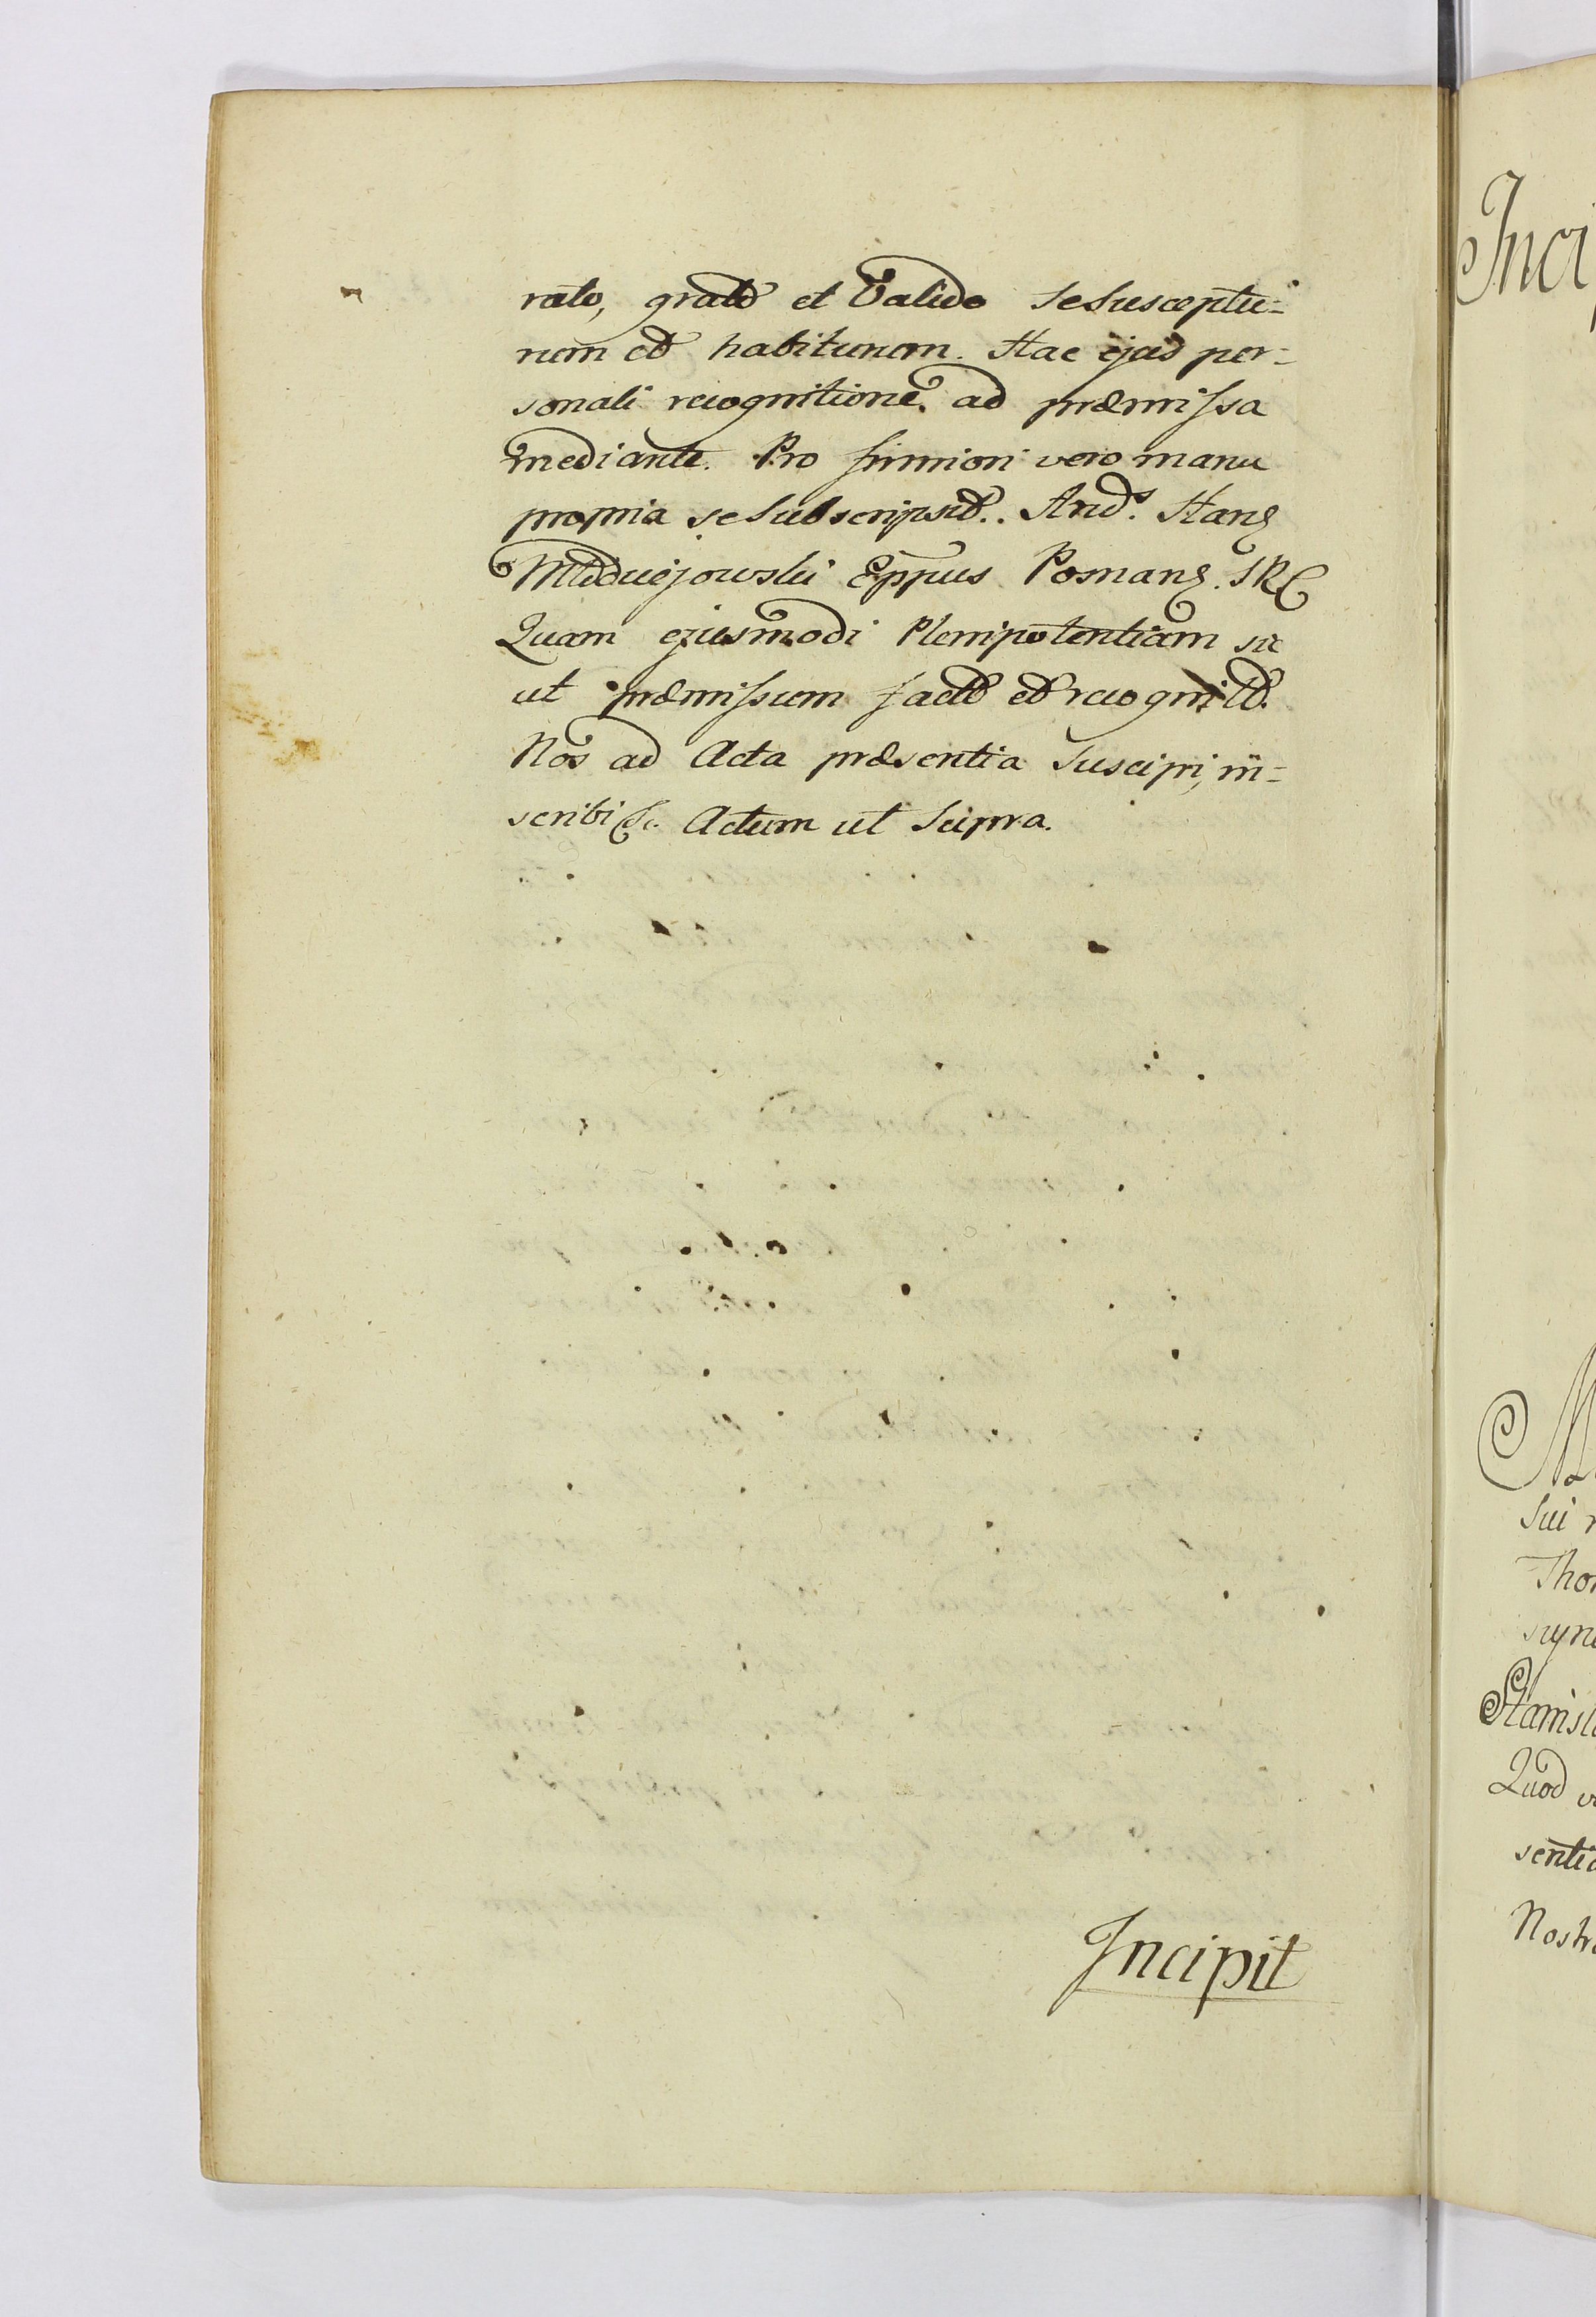 rato, grato et Valido se susceptu=
rum et habiturum. Hac ejus per=
sonali recognitione ad præmissa
mediante. Pro firmiori vero manu
propria se subscripsit. And.s Stan
Młodziejowski Eppus Posnan.
Quam ejusmodi Plenipotentiam sic
ut præmissum fact et recognit.
Nos ad Acta præsentia suscipi, in=
scribi &c. Actum ut supra.
Incipit
Inci
sui
Tho
Stanisl
Quod
senti
Nostr